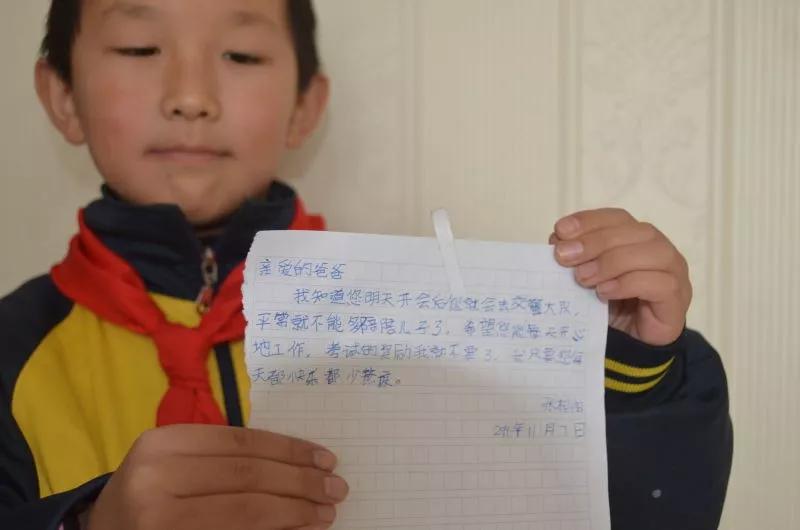 亲爱的爸爸
我知道您明天开会后您就会去交警大队,
平常就不能够陪陪儿子了,希望您能每天开心
地工作,考试的奖励我就不要了,我只要您每
天都快乐都少熬夜。
年11月7日